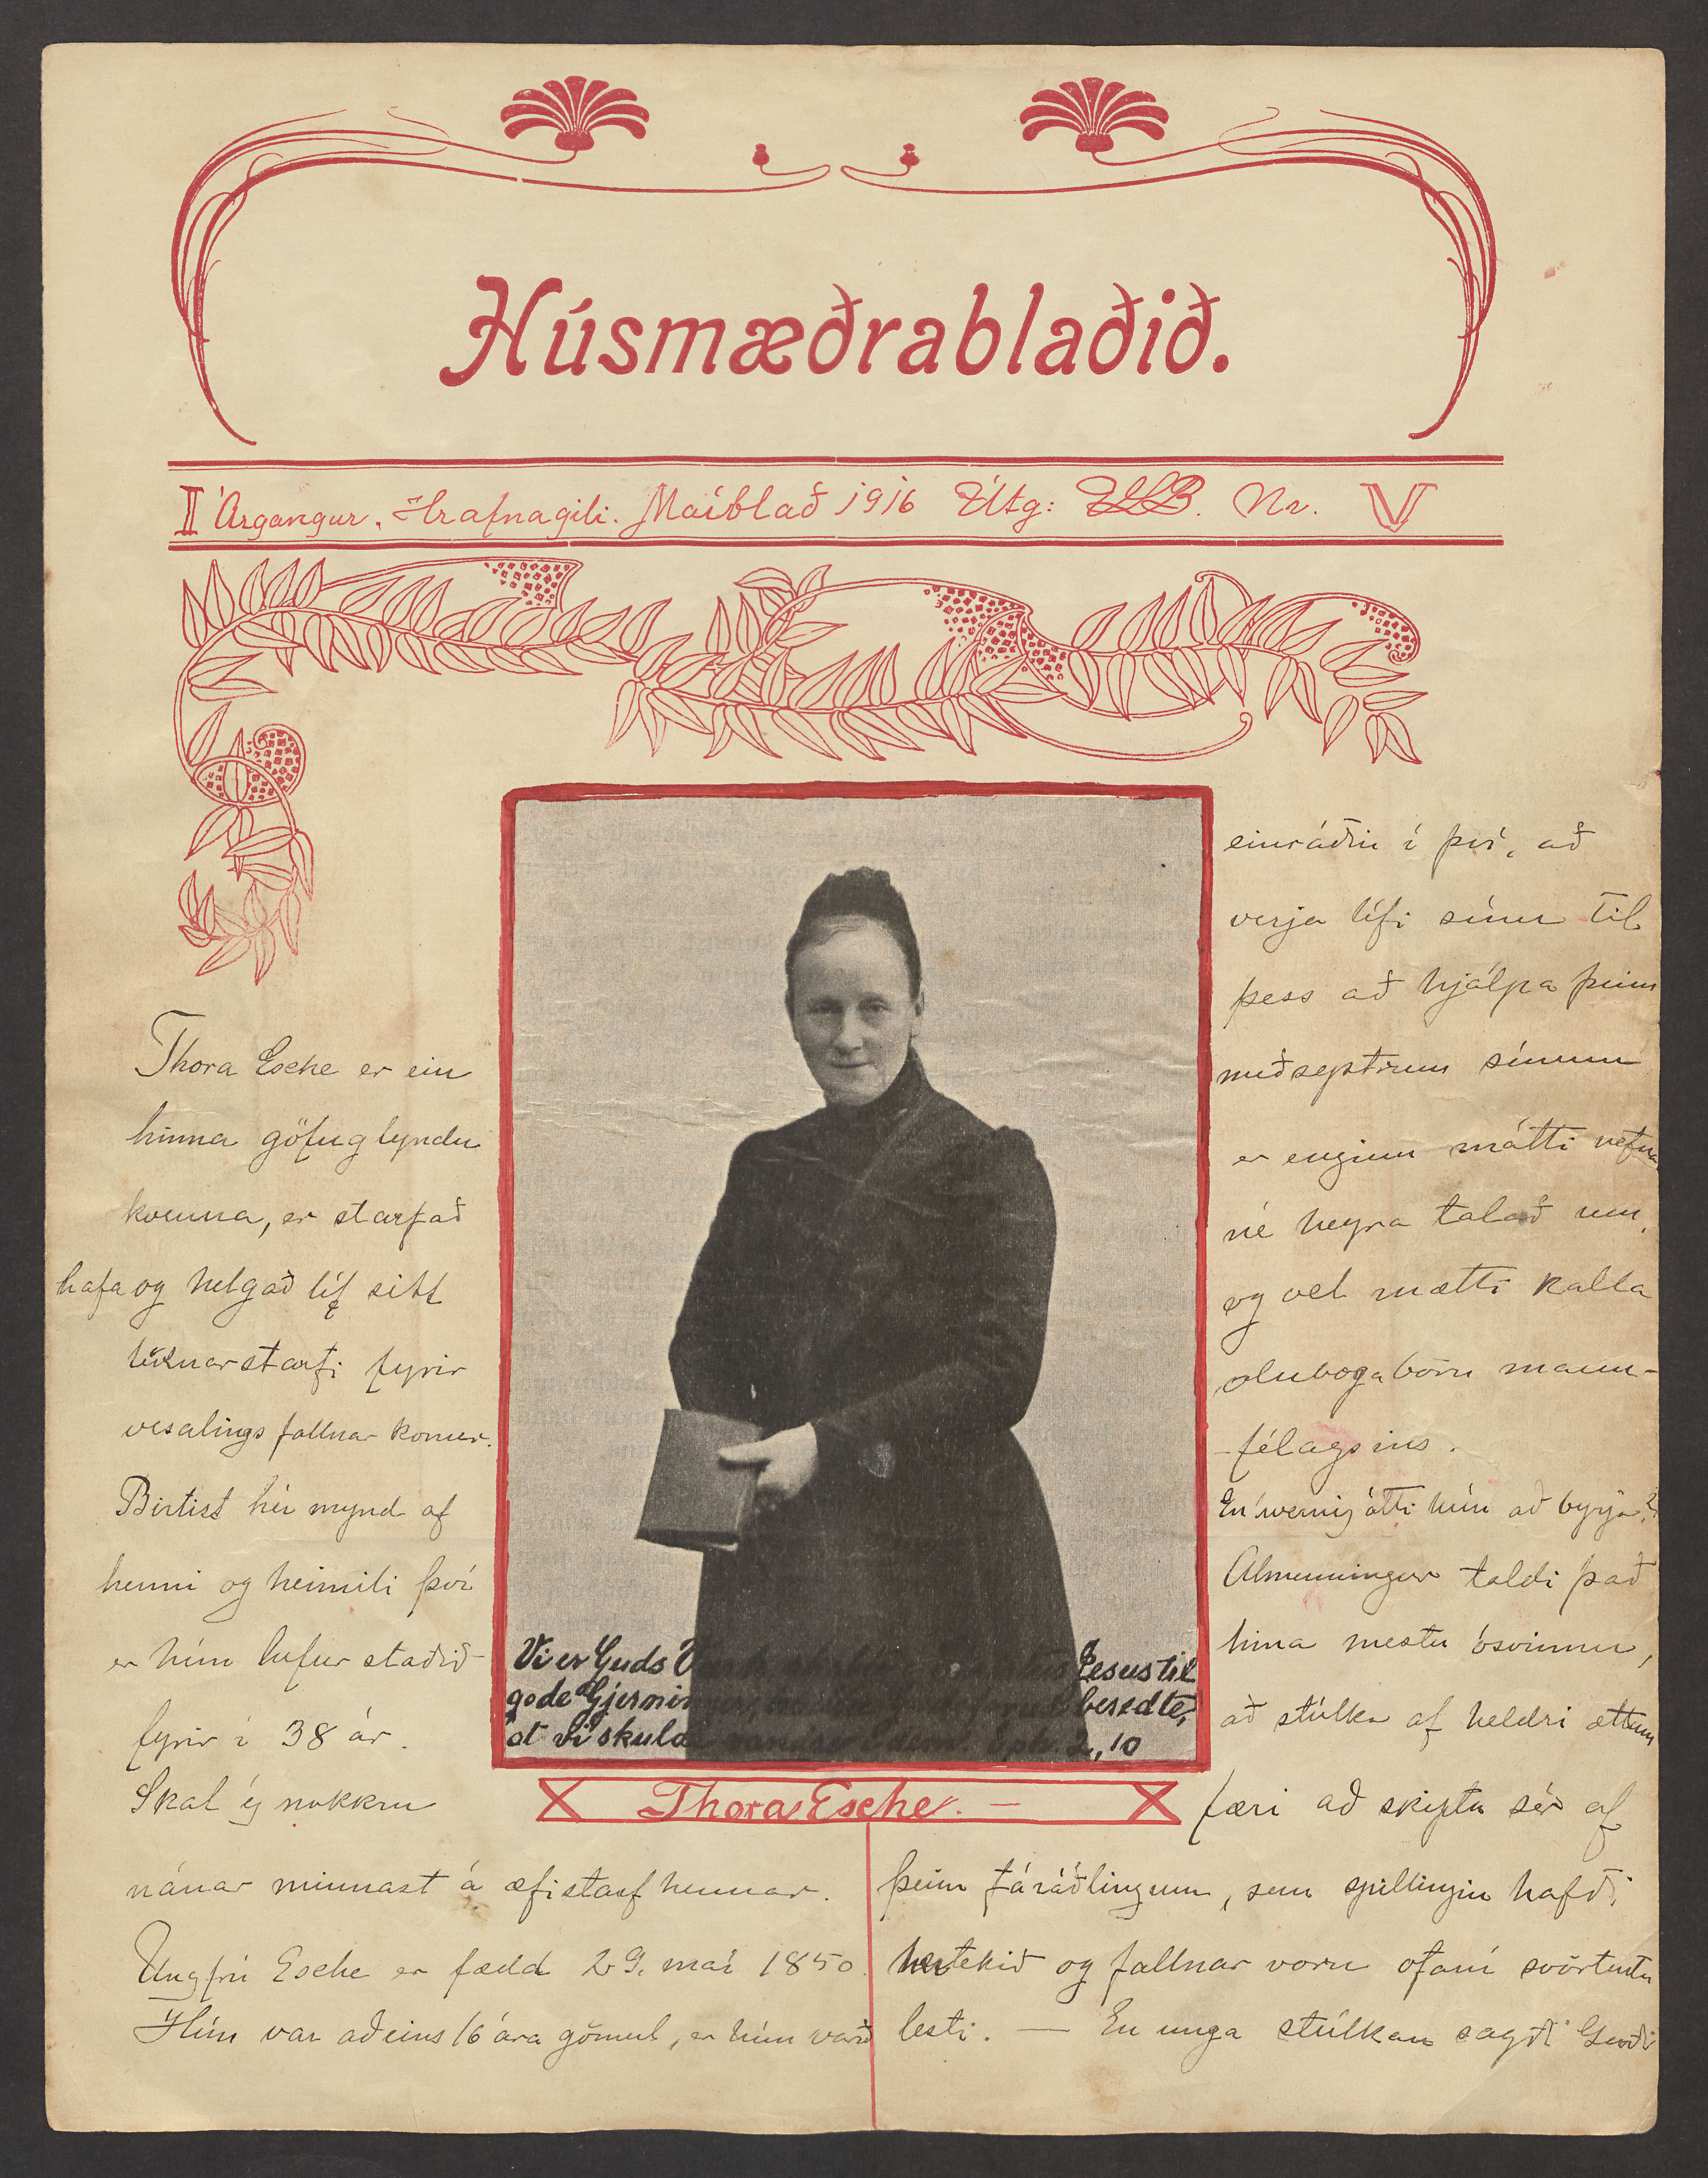 Húsmæðrablaðið.
II Árgangur. Hrafnagili. Maíblað 1916 Útg: Nr. V
Thora Esche er ein
hinna göfuglyndu
kvenna, er starfað
hafa og helgað líf sitt
líknarstarfi fyrir
vesalings fallnar konur.
Birtist hér mynd af
henni og heimili því
er hún hefur staðið
fyrir í 38 ár.
Skal ég nokkru
nánar minnast á æfistarf hennar.
Ungfrú Esche er fædd 29. maí 1850
Hún var aðeins 16 ára gömul, er hún varð
Vi er Guds Jesus til
gode Gjerninger, beredte,
at vi skulde 2, 10
Thora Esche. —
einráðin í því, að
verja lífi sínu til
þess að hjálpa þeim
meðsystrum sínum
er enginn mátti nefna
né heyra talað um,
og vel mætti kalla
olnbogabörn mann-
-félagsins.
En hvernig átti hún að byrja?
Almenningur taldi það
hina mestu ósvinnu,
að stúlka af heldri ættum
færi að skipta sér af
þeim táráðlingum, sem spillingin hafði
hertekið og fallnar voru ofaní svörtustu
lesti. — En unga stúlkan sagði Guði